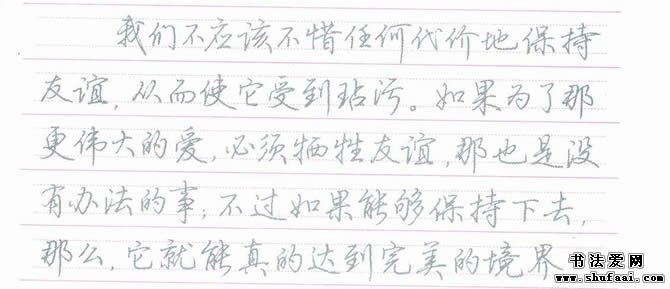 我们不应该不惜任何代价地保持
友谊，从而使它受到玷污。如果为了那
更伟大的爱，必须牺牲友谊，那也是没
有办法的事；不过如果能够保持下去，
那么，它就能真的达到完美的境界
书法爱网
www.shufaai.com